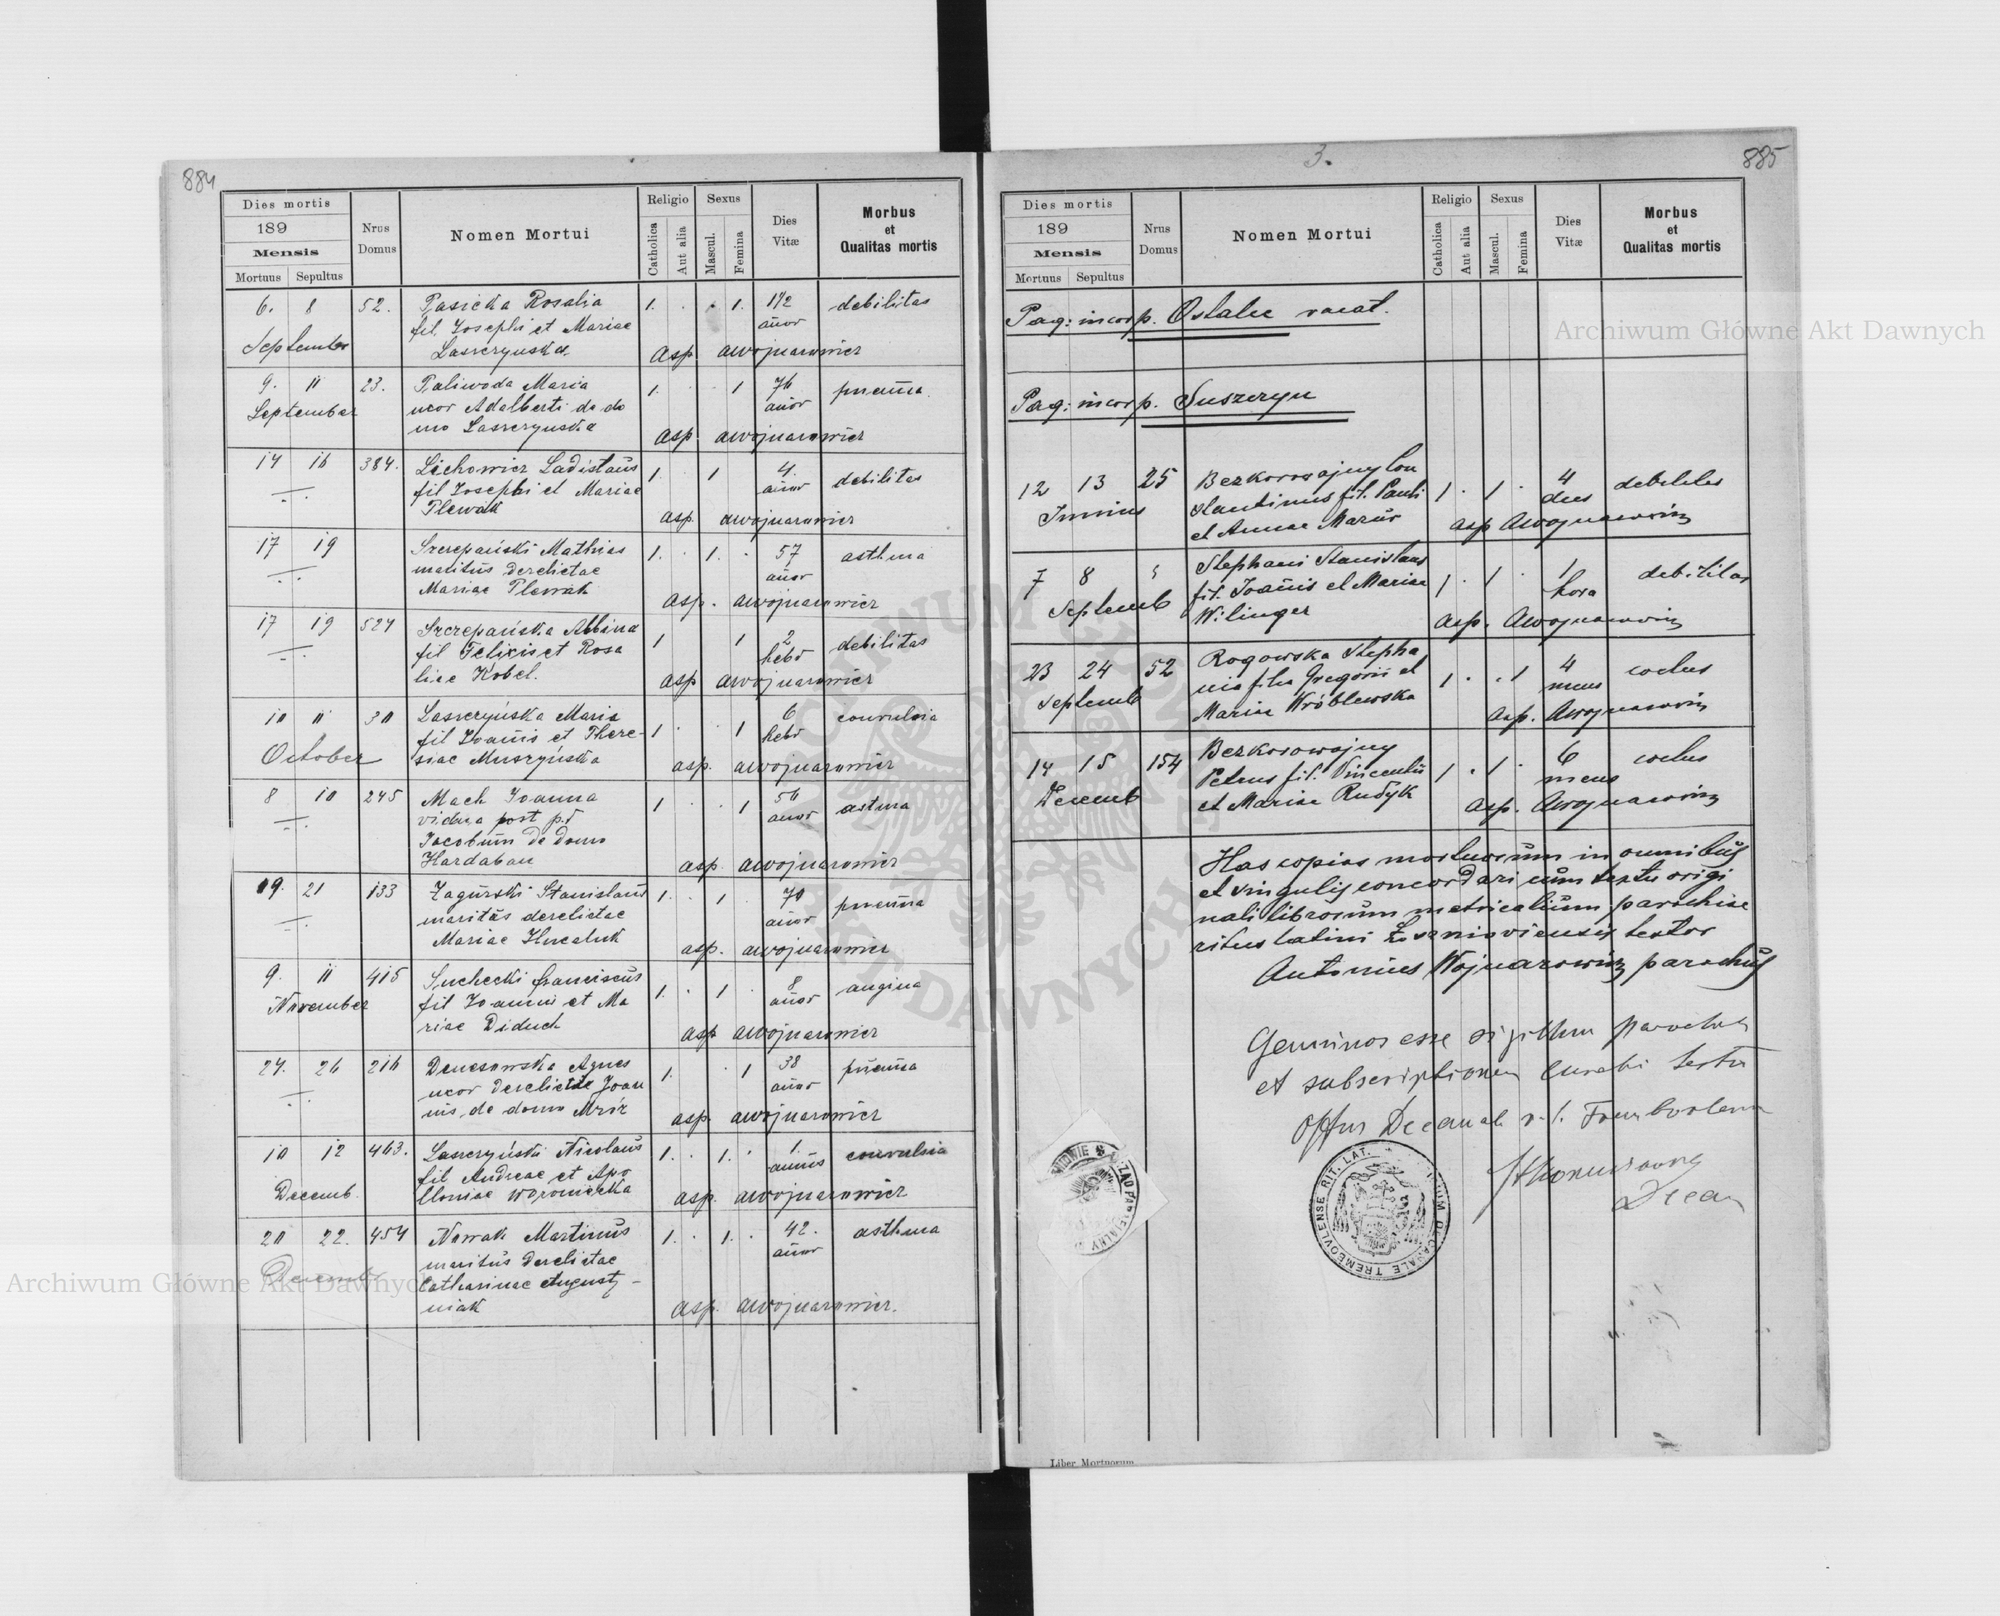 884
Dies mortis
189
Mensis
Mortuus Sepultus
Nrus Domus
Nomen Mortui
Religio
Catholica
Aut alia
Sexus
Mascul.
Femina
Dies Vitæ
Morbus et Qualitas mortis
6. 8 52. Pasicka Rosalia 1. 1. 1½ debilitas
September fil Josephi et Mariae añor
Laszczyńska asp awojnarowicz
9. 11 23. Paliwoda Maria 1. 1 76 pneuma
September uxor Adalberti de do añor
mo Laszczyńska asp awojnarowicz
14 16 384. Lechowicz Ladislaus 1 1 4. debilitas
fil Josephi et Mariae añor
Plewak asp. awojnarowicz
17 19 Szczepański Mathias 1. 1. 57 asthma
maritus derelictae añor
Mariae Plewak asp. awojnarowicz
17 19 524 Szczepańska Albina 1 1 2 debilitas
fil Felicis et Rosa hebd
liae Kobel. asp awojnarowicz
10 11 30 Laszczyńska Maria 1 1 6 convulsia
October fil Joañis et There- hebd
siae Muszyńska asp. awojnarowicz
8 10 245 Mach Joanna 1 1 56 astma
vidua post p.d añor
Jacobum de domo
Hardaban asp awojnarowicz
19. 21 133 Zagurski Stanislaus 1. 1 70 pneuma
maritus derelictae añor
Mariae asp. awojnarowicz
9. 11 415 Suchecki Franciscus 1. 1 8 angina
November fil Joannis et Ma añor
riae Diduch asp awojnarowicz
24. 26 216 Agnes 1. 1 38 pneuma
uxor derelictae Joan añor
nis de domo Mróz asp. awojnarowicz
10 12 463. Laszczyński Nicolaus 1. 1. 1. convulsia
Decemb. fil Andreae et Apo annus
lloniae Woroniecka asp. awojnarowicz
20 22. 454 Nowak Martinus 1. 1. 42. asthma
Decemb maritus derelictae añor
Catharinae Augusty-
niak asp. awojnarowicz.
3.
885
Dies mortis
189
Mensis
Mortuus Sepultus
Nrus Domus
Nomen Mortui
Religio
Catholica
Aut alia
Sexus
Mascul.
Femina
Dies Vitæ
Morbus et Qualitas mortis
Pag: incorp. Ostalce vacat.
Pag: incorp. Suszczyn
12 13 25 Bezkorowajny Con 1 1 4 debilitas
Junius stantinus fil. Pauli dies
et Annae Mazur asp Awojnarowicz
7 8 Stephani Stanislaus 1 1 1 debilitas
Septemb fil. Joañis et Mariae hora
Wilinger asp. Awojnarowicz
23 24 52 Rogowska Stepha 1 1 4
Septemb nia filia Gregorii et mens
Mariae Wróblewska asp. Awojnarowicz
14 15 154 Bezkorowajny 1 1 6
Decemb Petrus fil. Vincentii mens
et Mariae Rudyk asp. Awojnarowicz
Has copias mortuorum in omnibus
et singulis concordari cum textu origi
nali librorum metricalium parochiae
ritus latini testor
Antonius Wojnarowicz parochus
Genuinos esse sigillum parochiae
et subscriptionem Curati testor
Offum Decanale r. l.
Decan
DECANALE TREMBOVLENSE RIT. LAT.
Liber Mortuorum
Archiwum Główne Akt Dawnych
Archiwum Główne Akt Dawnych
ARCHIWUM GŁÓWNE AKT DAWNYCH